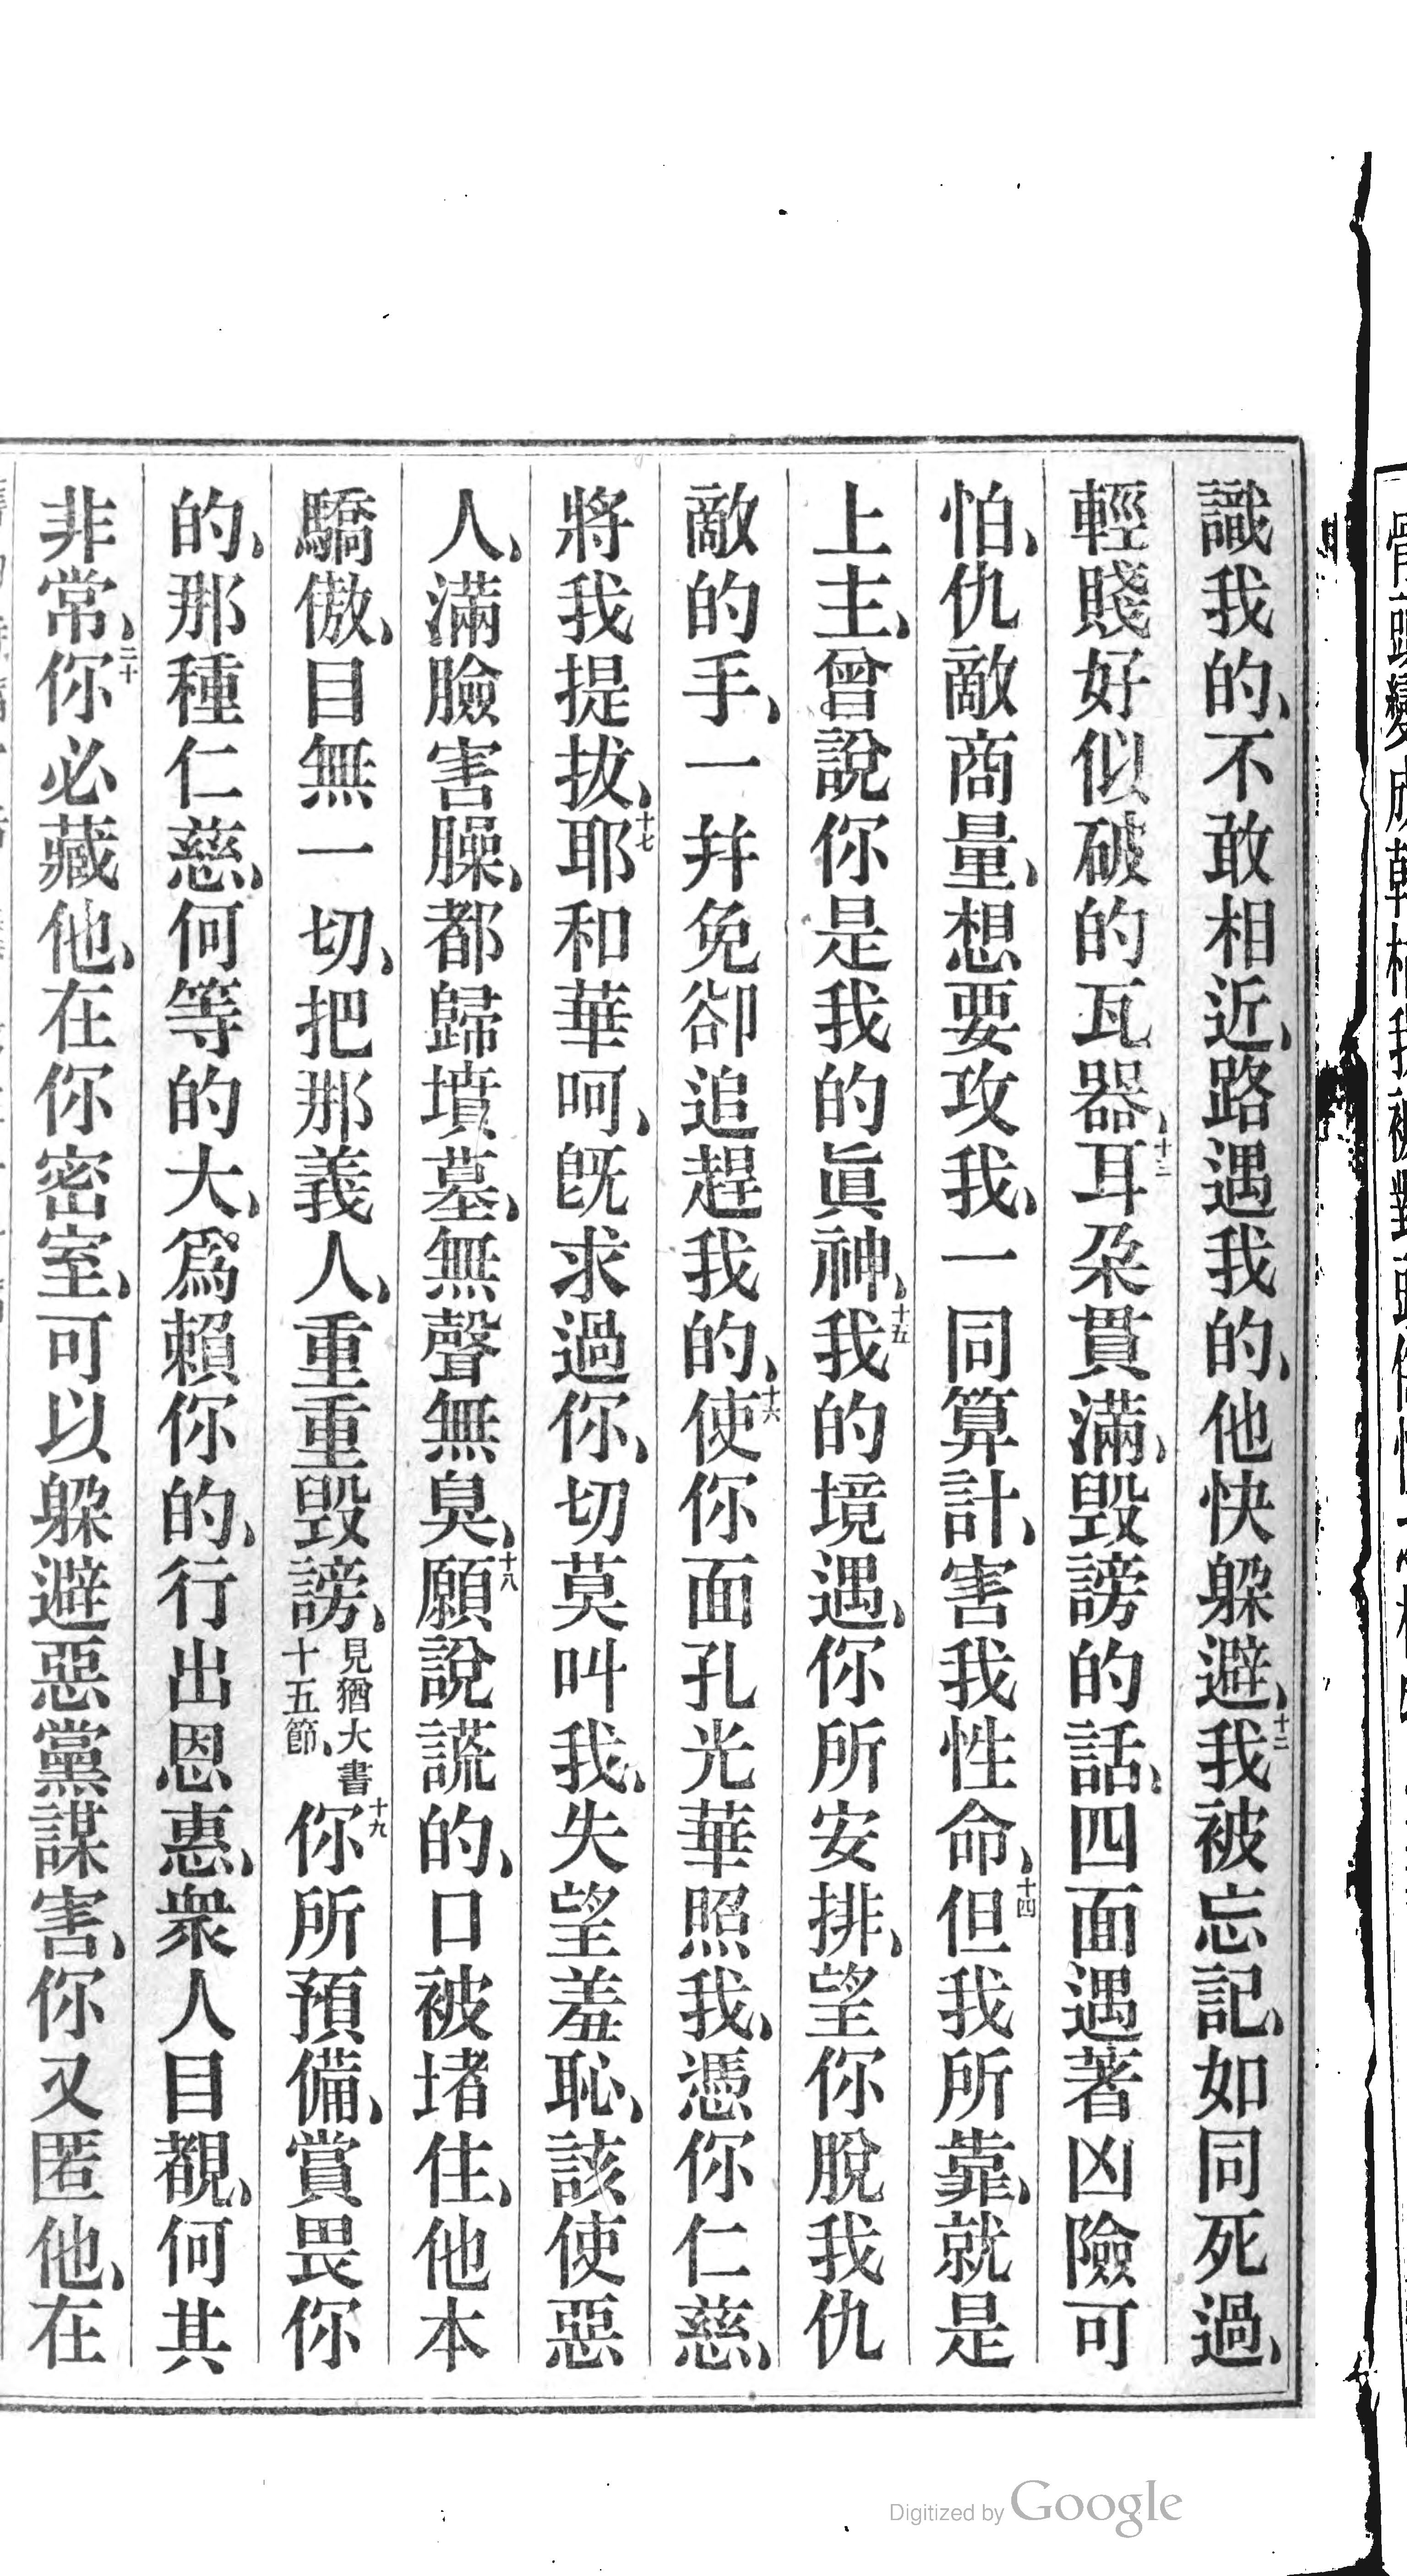 識我的、不敢相近、路遇我的、他快躲避、十二我被忘記、如同死過、
輕賤好似破的瓦器、十三耳朶貫滿、毀謗的話、四面遇著凶險可
怕、仇敵商量、想要攻我、一同算計、害我性命、十四但我所靠、就是
上主、曾說你是我的眞神、十五我的境遇、你所安排、望你脫我仇
敵的手、一幷免卻追趕我的、十六使你面孔光華照我、憑你仁慈、
將我提拔、十七耶和華呵、旣求過你、切莫叫我、失望羞恥、該使惡
人、滿臉害臊、都歸墳墓、無聲無臭、十八願說謊的、口被堵住、他本
驕傲、目無一切、把那義人、重重毀謗、見猶大書十五節、十九你所預備、賞畏你
的、那種仁慈、何等的大、爲賴你的、行出恩惠、衆人目覩、何其
非常、二十你必藏他、在你密室、可以躲避惡黨謀害、你又匿他、在
Digitized by Google